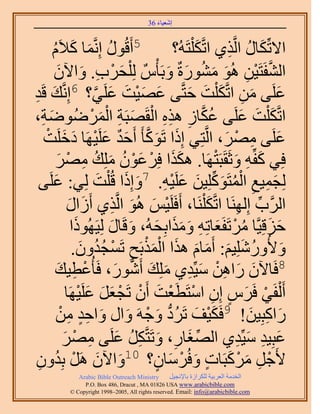 إشعياء 36
الاتِّكَالُ الَّذِي اتَّكَلْتَهُ؟ 5أَقُولُ إِنَّمَا كَلاَمُ
الشَّفَتَيْنِ هُوَ مَشُورَةٌ وَبَأْسٌ لِلْحَرْبِ. وَالآنَ
عَلَى مَنِ اتَّكَلْتَ حَتَّى عَصَيْتَ عَلَيَّ؟ 6إِنَّكَ قَدِ
اتَّكَلْتَ عَلَى عُكَّازِ هذِهِ الْقَصَبَةِ الْمَرْضُوضَةِ،
عَلَى مِصْرَ، الَّتِي إِذَا تَوَكَّأَ أَحَدٌ عَلَيْهَا دَخَلَتْ
فِي كَفِّهِ وَثَقَبَتْهَا. هكَذَا فِرْعَوْنُ مَلِكُ مِصْرَ
لِجَمِيعِ الْمُتَوَكِّلِينَ عَلَيْهِ. 7وَإِذَا قُلْتَ لِي: عَلَى
الرَّبِّ إِلهِنَا اتَّكَلْنَا، أَفَلَيْسَ هُوَ الَّذِي أَزَالَ
حَزَقِيَّا مُرْتَفَعَاتِهِ وَمَذَابِحَهُ، وَقَالَ لِيَهُوذَا
وَلأُورُشَلِيمَ: أَمَامَ هذَا الْمَذْبَحِ تَسْجُدُونَ.
8فَالآنَ رَاهِنْ سَيِّدِي مَلِكَ أَشُّورَ، فَأُعْطِيكَ
أَلْفَيْ فَرَسٍ إِنِ اسْتَطَعْتَ أَنْ تَجْعَلَ عَلَيْهَا
رَاكِبِينَ! 9فَكَيْفَ تَرُدُّ وَجْهَ وَال وَاحِدٍ مِنْ
عَبِيدِ سَيِّدِي الصِّغَارِ، وَتَتَّكِلُ عَلَى مِصْرَ
لأَجْلِ مَرْكَبَاتٍ وَفُرْسَانٍ؟ 10وَالآنَ هَلْ بِدُونِ
Arabic Bible Outreach Ministry الخدمة العربية للكرازة بالإنجيل
P.O. Box 486, Dracut , MA 01826 USA www.arabicbible.com
© Copyright 1998–2005, All rights reserved. Email: info@arabicbible.com